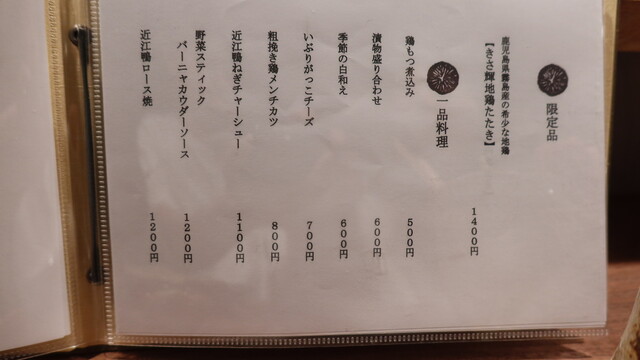 限定品
鹿児島県霧島産の希少な地鶏
【きさ輝地鶏たたき】
1400円
一品料理
鶏もつ煮込み
500円
漬物盛り合わせ
600円
季節の白和え
600円
いぶりがっこチーズ
700円
粗挽き鶏メンチカツ
800円
近江鴨ねぎチャーシュー
1100円
野菜スティック
バーニャカウダーソース
1200円
近江鴨ロース焼
1200円